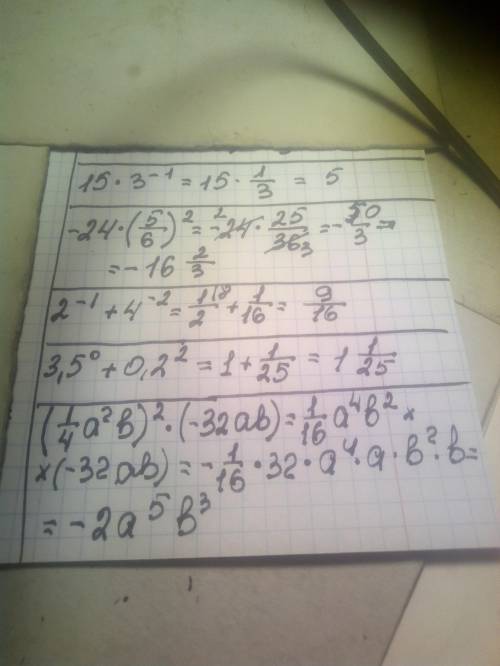 15 · 3⁻¹ = 15 · 1/3 = 5
-24 · (5/6)² = -24² · 25/36₃ = -50/3 =
= -16 2/3
2⁻¹ + 4⁻² = 1/2⁽⁸ + 1/16 = 9/16
3,5⁰ + 0,2² = 1 + 1/25 = 1 1/25
(1/4 a²b)² · (-32ab) = 1/16 a⁴b² ×
× (-32ab) = -1/16 · 32 · a⁴ · a · b² · b =
= -2a⁵b³